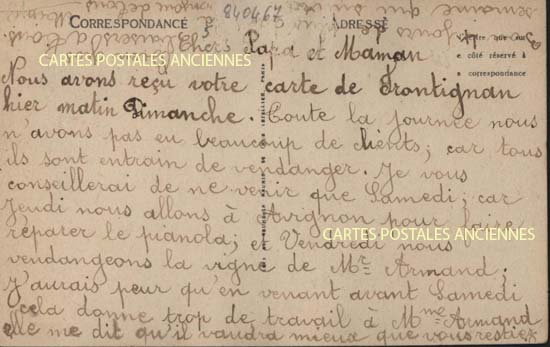 CORRESPONDANCE
840467
ADRESSE
côté réservé à
correspondance
Chers Papa et Maman
CARTES POSTALES ANCIENNES
Nous avons reçu votre carte de Frontignan
hier matin Dimanche. Toute la journée nous
n'avons pas eu beaucoup de clients, car tous
ils sont entrain de vendanger. Je vous
conseillerai de ne venir que Samedi, car
Jeudi nous allons à Avignon pour faire
réparer le pianola; et Vendredi nous
CARTES POSTALES ANCIENNES
vendangeons la vigne de Mr Armand;
J'aurais peur qu'en venant avant Samedi
cela donne trop de travail à Mme Armand
elle me dit qu'il vaudra mieux que vous restiez